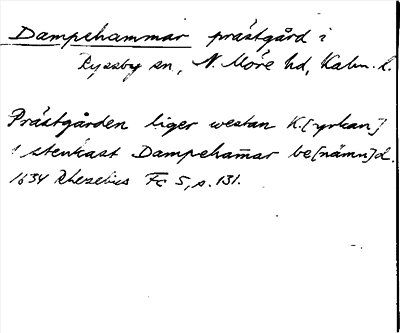 Dampehammar prästgård i
Ryssby sn, N. Möre hd, Kalm. l.
Prästgården liger westan K.[yrkan]
1 stenkast Dampeham̄ar be[nämn]d.
1634 Rhezelius Fc 5, s. 131.